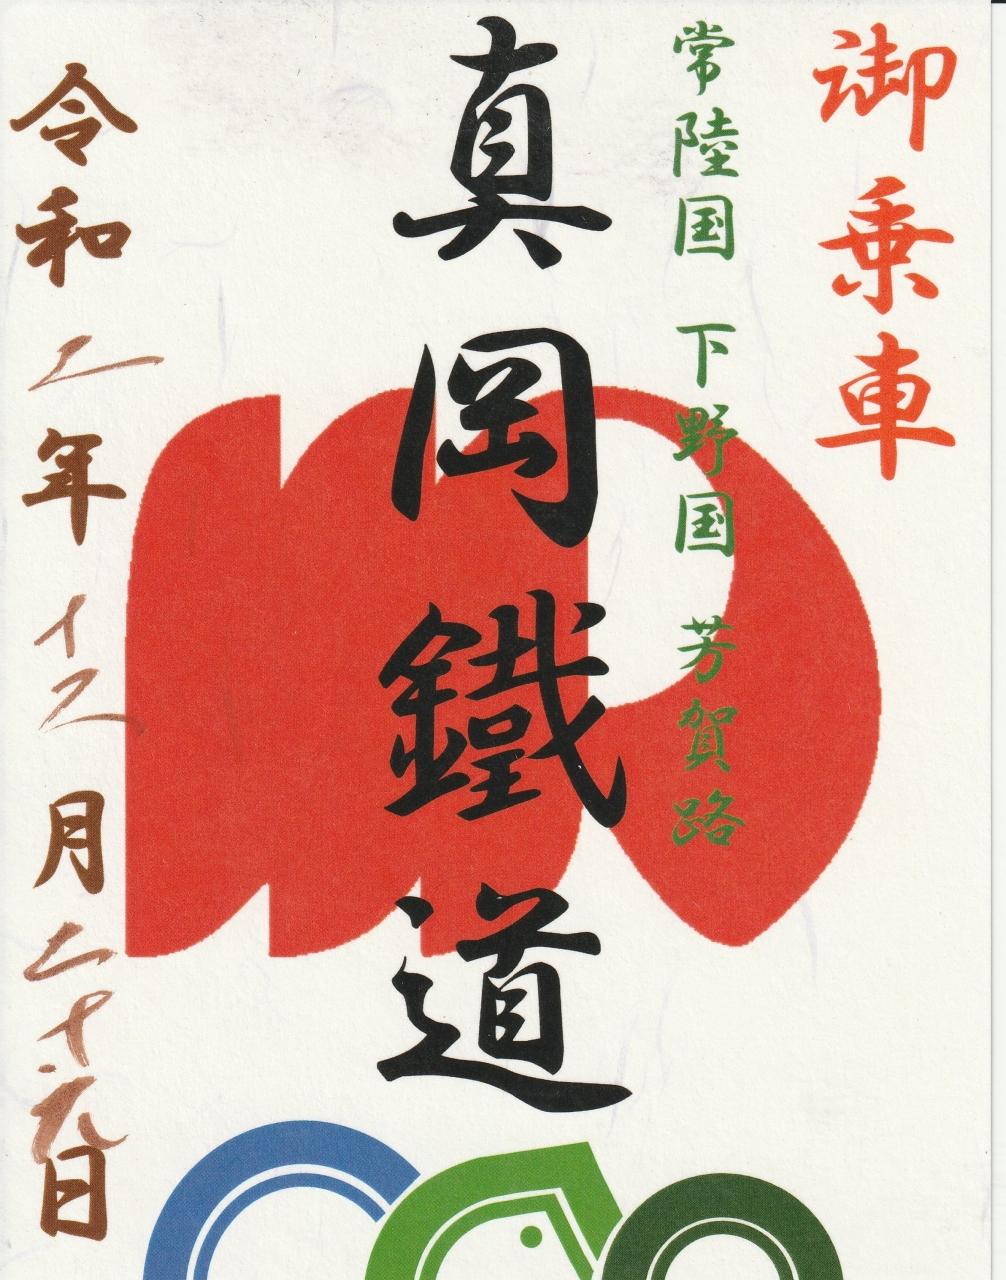 御乗車
常陸国 下野国 芳賀路
真岡鐵道
令和二年十二月二十六日